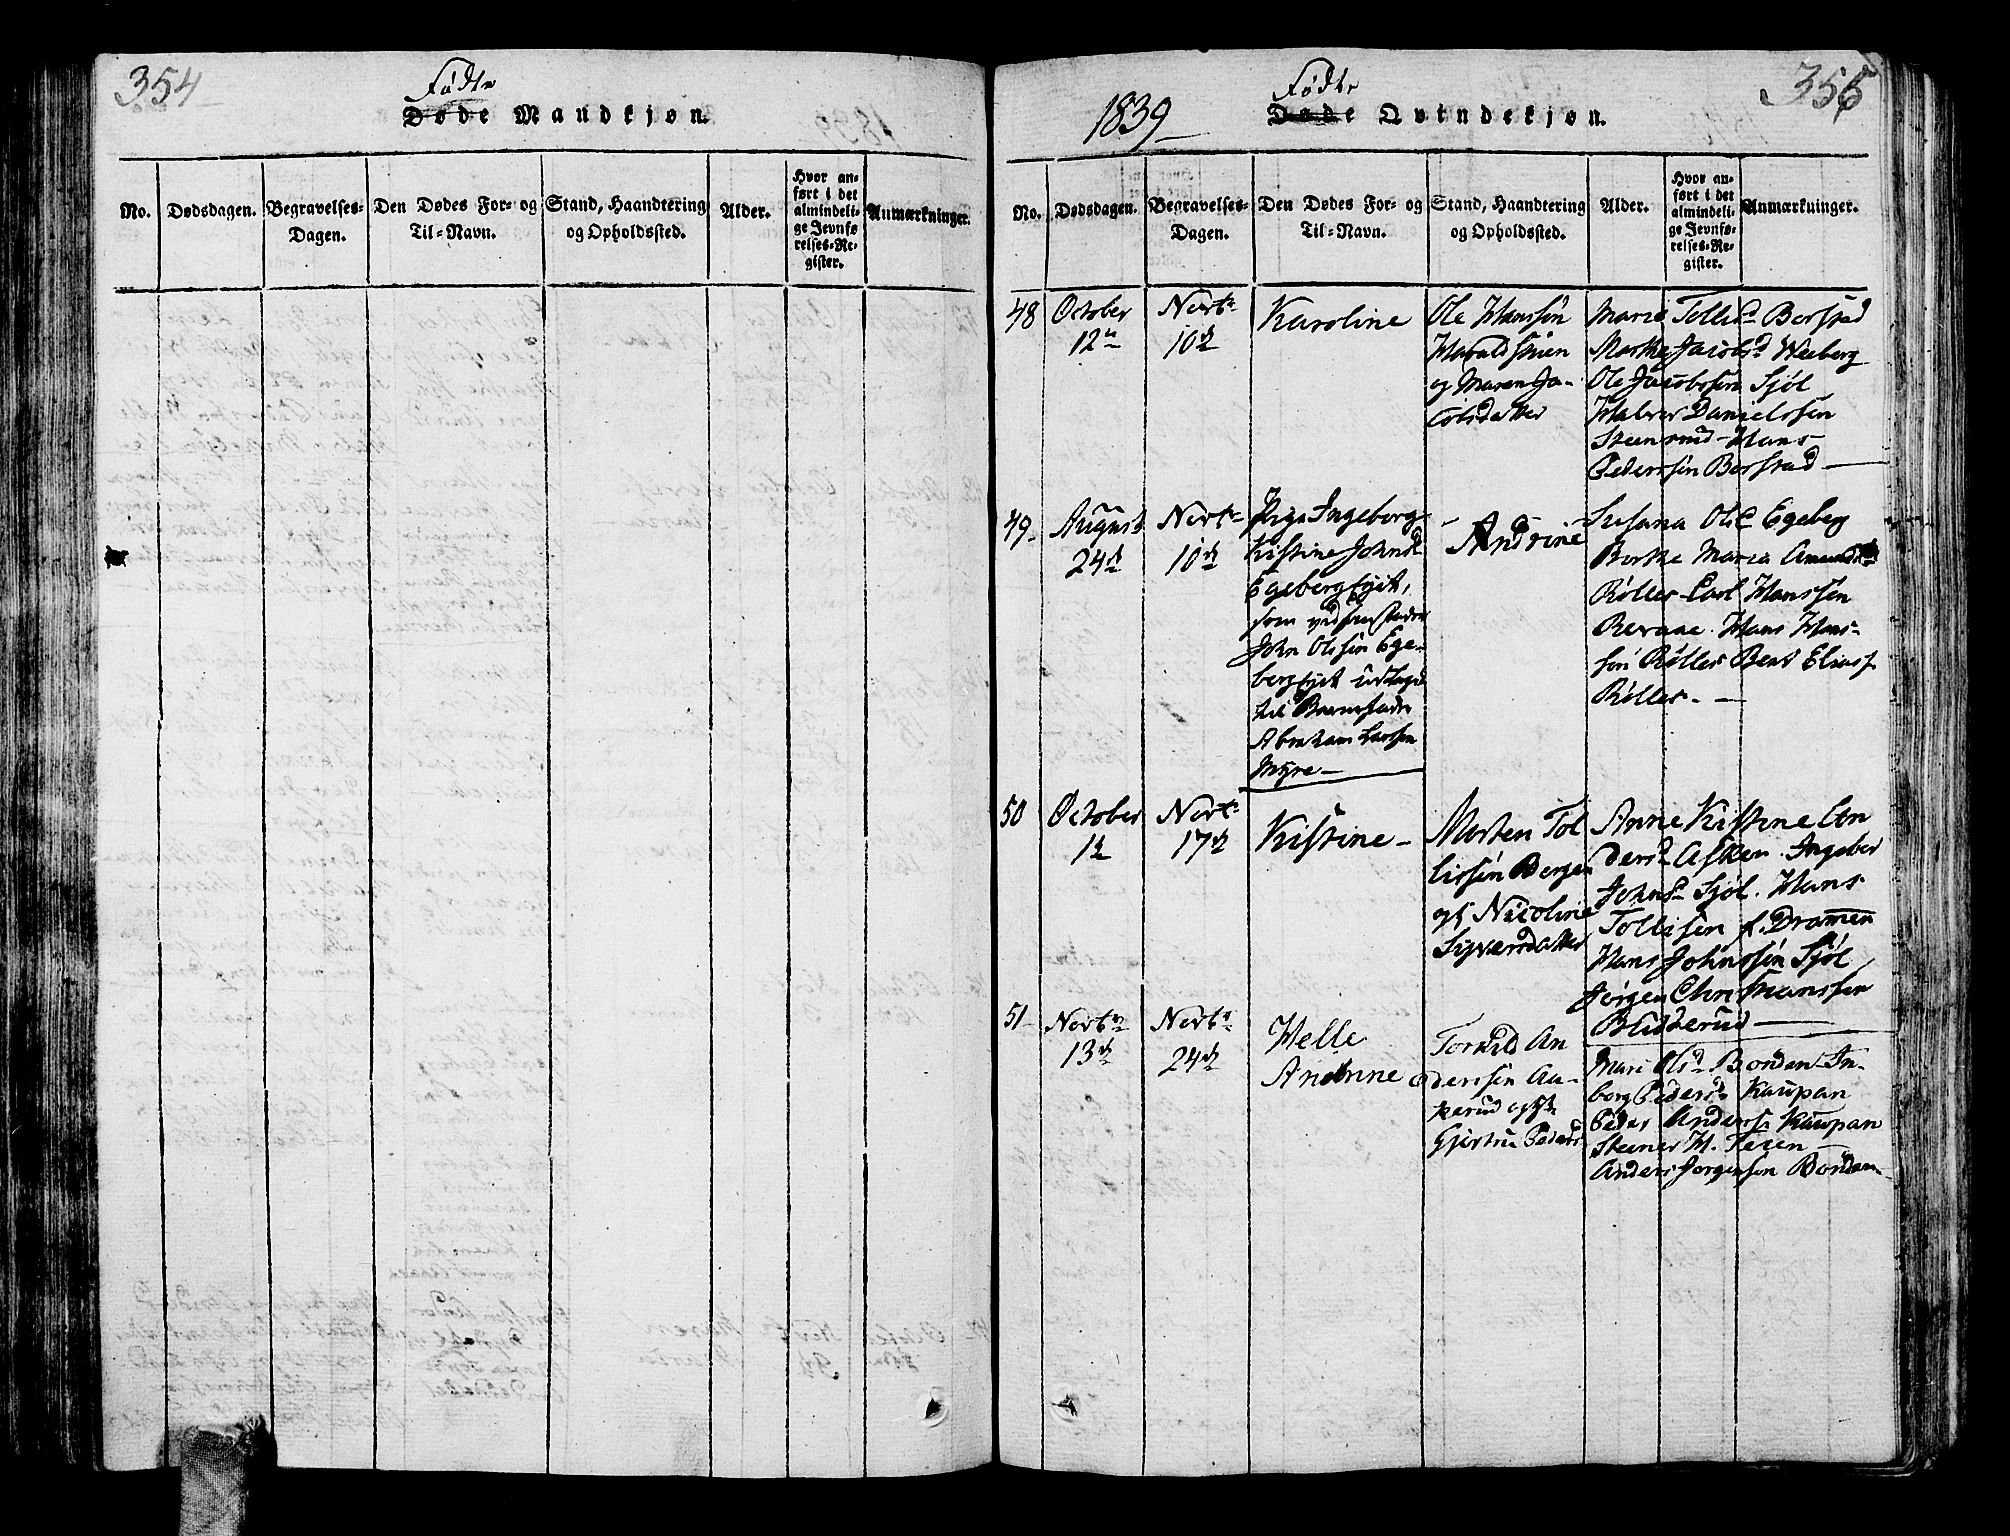 354
Fødte
Døde Mandkjøn.
No.
Dødsdagen.
Begravelses-
Dagen.
Den Dødes For- og
Til-Navn.
Stand, Haandtering
og Opholdssted.
Alder.
Hvor an-
ført i det
almindeli-
ge Jevnfø-
relses-Re-
gister.
Anmærkninger.
1839
Fødte
Døde Qvindekjøn.
355
No.
Dødsdagen.
Begravelses-
Dagen.
Den Dødes For- og
Til-Navn.
Stand, Haandtering
og Opholdssted.
Alder.
Hvor an-
ført i det
almindeli-
ge Jevnfø-
relses-Re-
gister.
Anmærkninger.
48
October
12te
Novbr
10d
Karoline
Ole Hanssøn
Haraldstuen
og Maren Ja-
cobsdatter
Marie Tollefsd Berstad
Marthe Jacobsd Weeberg
Ole Jacobssøn Sjøl
Halvor Danielssøn
Steensrud - Hans
Pederssøn Berstad
49
August
24d
Novbr
10d
Pige Ingeborg
Kistine Johnsd
Egeberg Ejet,
som
John Olssøn Ege-
berg Ejet udlagde
til Barnefader
Abraham Larssøn
Myre
Andrine
Susana Olsd Egeberg
Berthe Maria
Røller Carl Hanssøn
Revaae. Hans Hans-
søn Røller Bent Eliass
Røller
50
October
1d
Novbr
17d
Kistine
Morten Tol
lissøn Bergen
og Nicoline
Syversdatter
Anne Kistine An
dersd Asken. Ingebor
Johnsd Sjøl. Hans
Tollisen f. Dramen
Hans Johnssøn Sjøl
Jørgen Christianssøn
Blidderud
51
Novbr
13d
Novbr
24d
Helle
Andrine
Torkild An
derssøn Aa-
kerud og
Gjertru Pedersd
Mari Olsd Borden In-
borg Pedersd Kaupan
Peder Anderss Kaupan
Steener H. Teien
Anders Jørgenssøn Borden